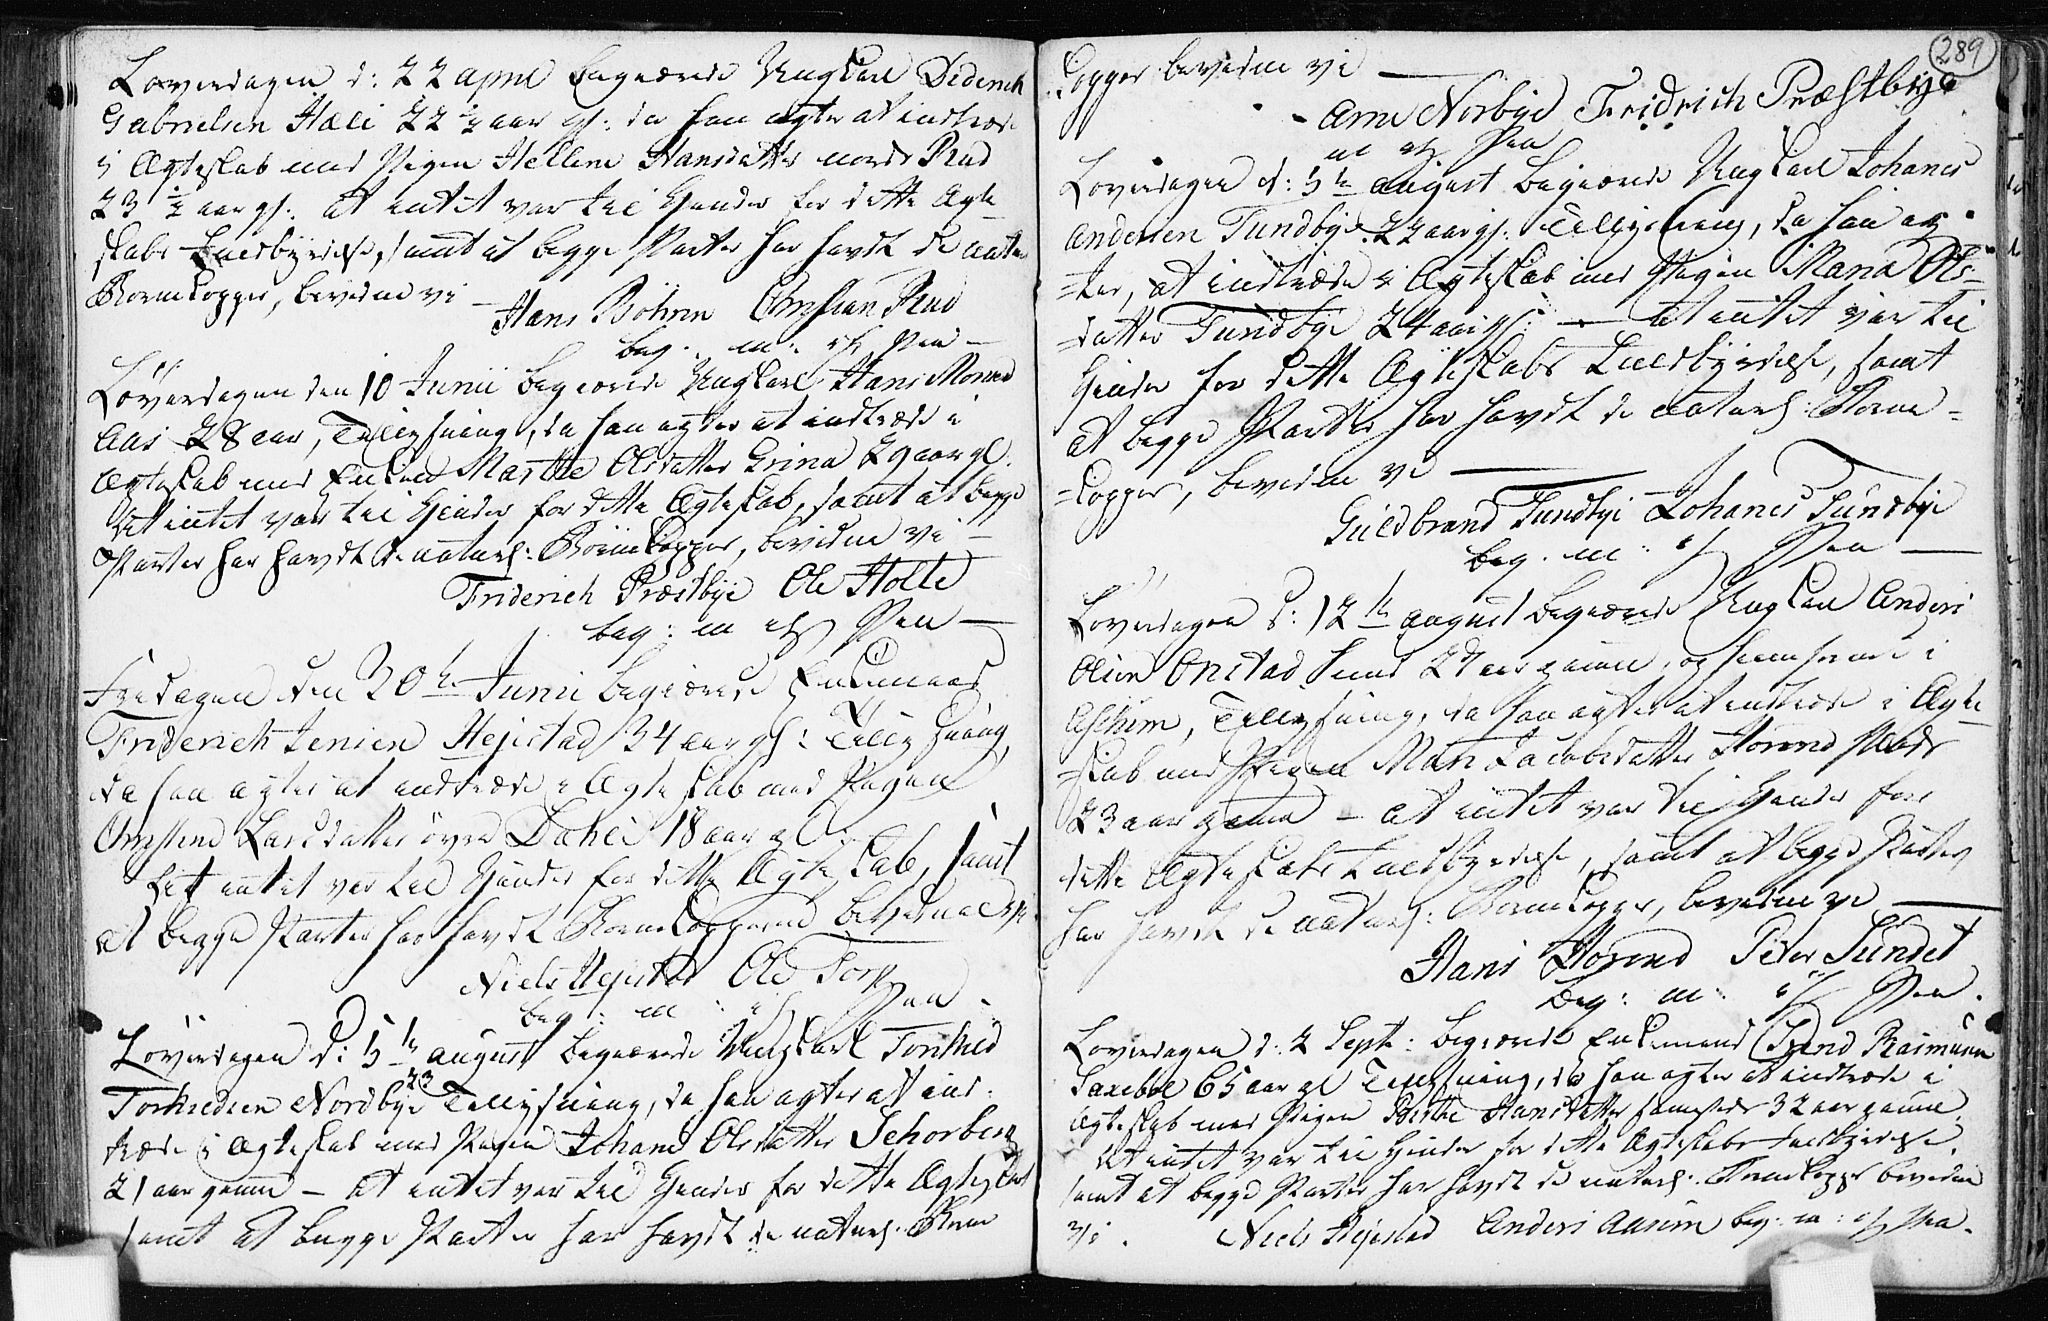 Løverdagen d: 22 april begiærede Ungkarl Diderich
Gabrielsen Hæli 22 1/2 aar gl: da han agter at indtræde
i Ægteskab med Pigen Hellene Hansdatter nordr Rud
23 1/2 aar gl: at intet var til Hinder for dette Ægte-
skabs Fuldbyrdelse, samt at begge Parter har havdt de natur
Børnekopper, bevidne vi —
Hans Böhnn Christian Rud
beg: m: h Pen —
Løverdagen den 10 Junii begiærede Ungkarl Hans Monsen
Aas 28 aar, Tillysning, da han agter at indtræde i
Ægteskab med Enken Marthe Olsdatter Grina 29 aar gl:
At intet var til Hinder for dette Ægteskab, samt at begge
Parter har havdt de naturl: Børnekopper, bevidne vi —
Friderich Præstbye Ole Holte
beg: m h Pen —
Fredagen den 30te Junii begiærede Enkemand
Friderich Jensen Hejestad 34 aar gl: Tillysning
da han agter at indtræde i Ægteskab med Pigen
Christine Larsdatter øvre Dahli 18 aar gl
At intet var til Hinder for dette Ægteskab, samt
at begge Parter har havdt Børnekopperne bevidne vi
Niels Hejestad Ole Torp
beg: m: h Pen
Løverdagen d: 5te august begiærede Ungkarl Torkild
Torkildsen Nordbye 23 Tillysning, da han agter at ind-
træde i Ægteskab med Pigen Johane Olsdatter Schorberg
21 aar gamel — at intet var til Hinder for dette Ægteskab
samt at begge Parter har havdt de naturl. Børne
289
Kopper bevidne vi —
Arne Norbye Fridrich Præstbye
m h Pen
Løverdagen d: 5te august begiærede Ungkarl Johanes
Andersen Sundbye 22 aar gl: Tillysning, da han ag-
ter, at indtræde i Ægteskab med Pigen Maria Ols-
datter Sundbye 24 aar gl: — at intet var til
Hinder for dette Ægteskabs Fuldbyrdelse, samt
at begge Parter har havdt de naturl: Børne-
kopper, bevidne vi —
Guldbrand Sundbye Johanes Sundbye
beg. m: h Pen —
Løverdagen d: 12te august begiærede Ungkarl Anders
Olsen Onstad 27 aar gamel, og hiemhørende i
Aschim, Tillysning, da han agter at indtræde i Ægte-
skab med Pigen Mari Jacobsdatter Horend
23 aar gamel — at intet var til Hinder for
dette Ægteskabs Fuldbyrdelse, samt at begge Parter
har havdt de naturl: Børnekopper, bevidne vi —
Hans Horend Peder Sundet
beg: m: h Pen.
Løverdagen d: 2 Septr: begiærede Enkemand Svend Rasmusen
Saxebøl 65 aar gl Tillysning, da han agter at indtræde i
Ægteskab med Pigen Birthe Hansdatter sammesteds 32 aar gamel
At intet var til Hinder for dette Ægteskabs Fuldbyrdelse
samt at begge Parter har havdt de naturl. Børnekopper bevidne
vi. Niels Hejestad Anders Aasim beg: m: h Pen.